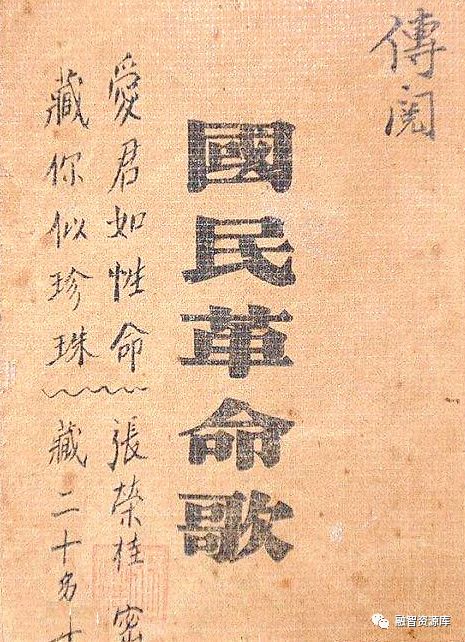 傳閱
國民革命歌
愛君如性命 張榮桂 密
藏你似珍珠 藏二十多
融智资源库